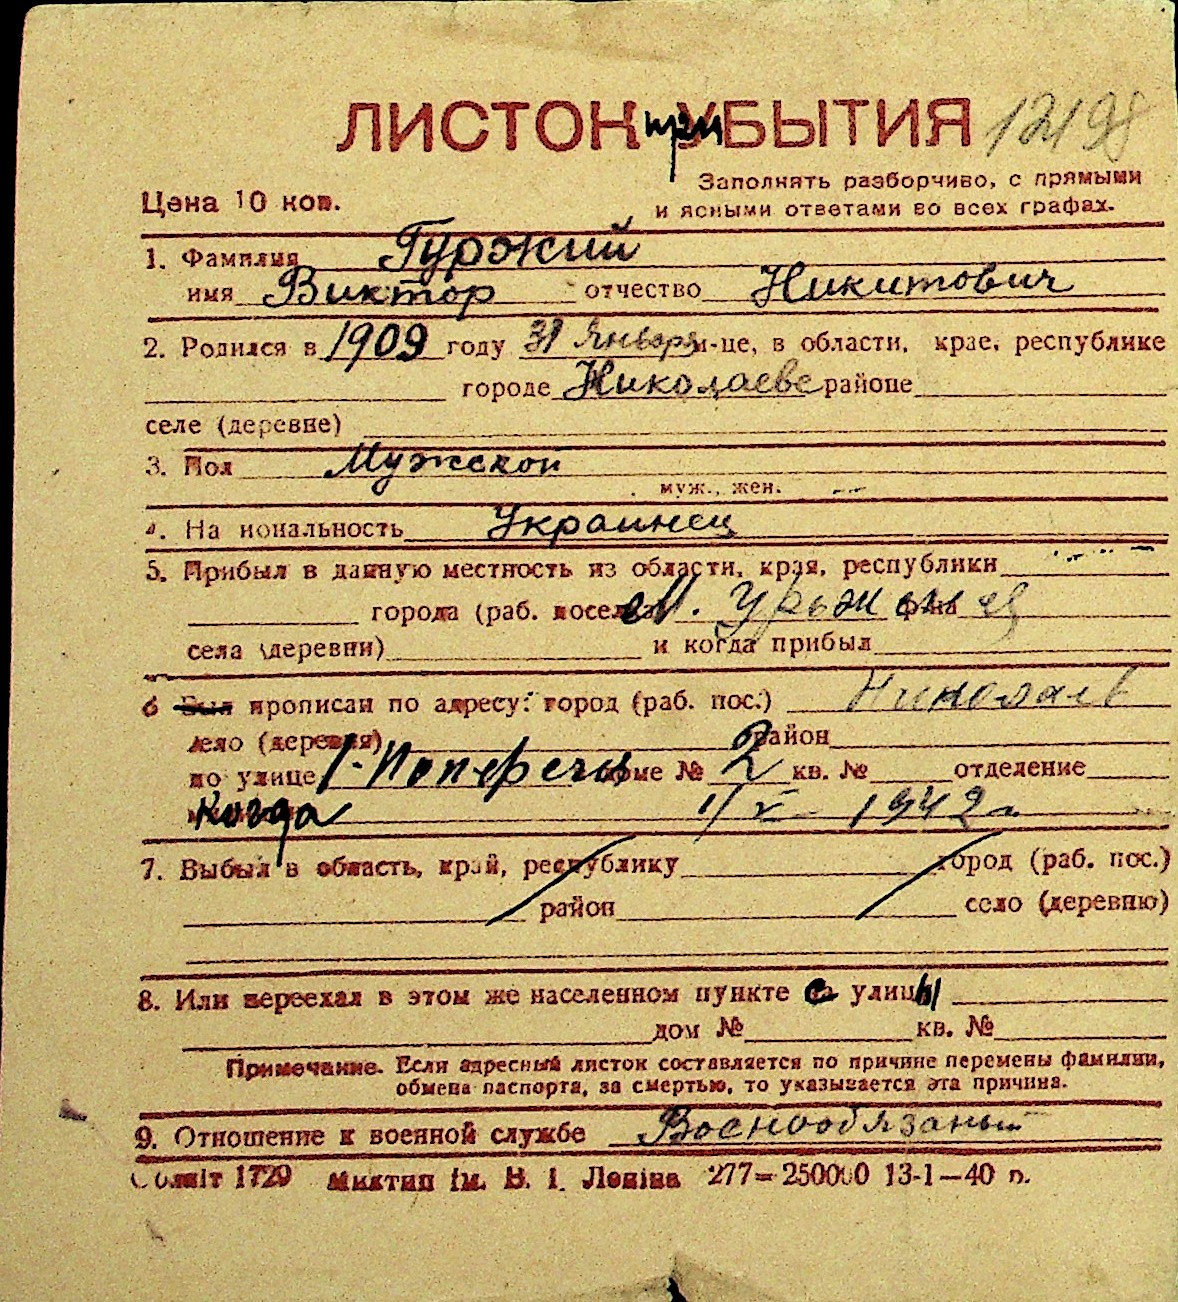 ЛИСТОК при УБЫТИЯ 12198
Заполнять разборчиво, с прямыми
Цена 10 коп. и ясными ответами во всех графах.
1. Фамилия Гуржий
имя Виктор отчество Никитович
2. Родился в 1909 году 31 Января м-це, в области, крае, республике
городе Николаеве районе
селе (деревне)
3. Пол Мужской
муж., жен.
4. На иональность Украинец
5. Прибыл в данную местность из области, края, республики
города (раб. поселка) м.
села (деревни) и когда прибыл
6 Был прописан по адресу: город (раб. пос.) Николаев
село (деревня) район
по улице доме № 2 кв. № отделение
Когда 1/V 1942 г.
7. Выбыл в область, край, республику город (раб. пос.)
район село (деревню)
8. Или переехал в этом же населенном пункте с улицы
дом № кв. №
Примечание. Если адресный листок составляется по причине перемены фамилии,
обмена паспорта, за смертью, то указывается эта причина.
9. Отношение к военной службе Военнообязаный
Обліт 1729 Миктип ім. В. І. Леніна 277—250000 13-1—40 р.